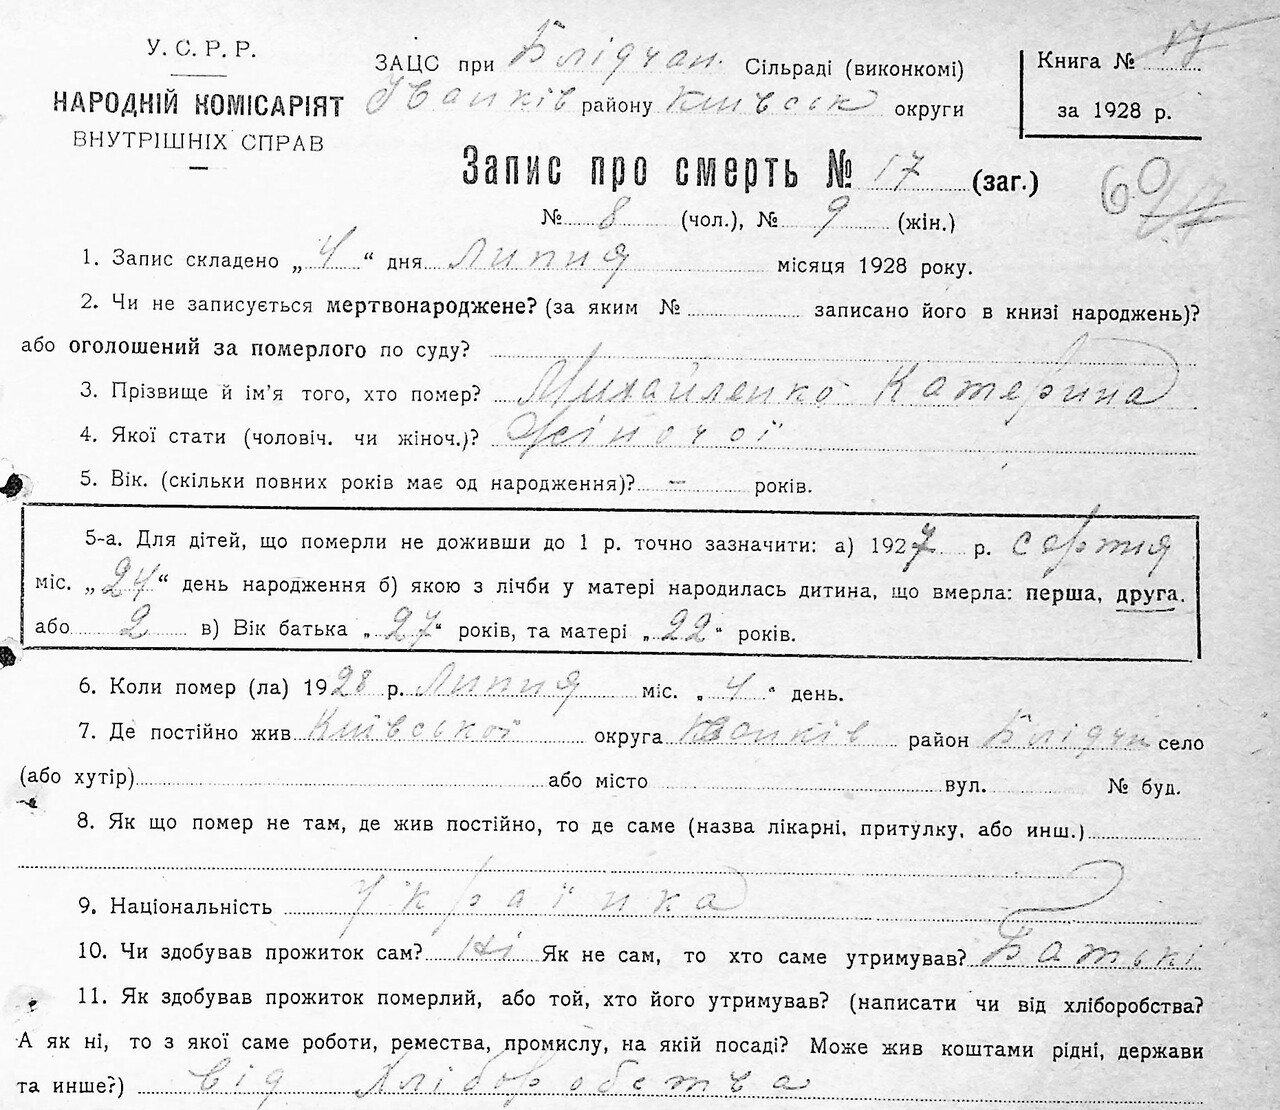 У. С. Р. Р.
НАРОДНІЙ КОМІСАРІЯТ
ВНУТРІШНІХ СПРАВ
ЗАЦС при Блідчан. Сільраді (виконкомі)
Іванків району Київськ округи
Книга № 17
за 1928 р.
Запис про смерть № 17 (заг.)
№ 8 (чол.), № 9 (жін.)
60/17
1. Запис складено „4“ дня Липня місяця 1928 року.
2. Чи не записується мертвонароджене? (за яким № записано його в книзі народжень)?
або оголошений за померлого по суду?
3. Прізвище й ім'я того, хто помер? Михайленко Катерина
4. Якої стати (чоловіч. чи жіноч.)? Жіночої
5. Вік. (скільки повних років має од народження)? — років.
5-а. Для дітей, що померли не доживши до 1 р. точно зазначити: а) 1927 р. серпня
міс. „24“ день народження б) якою з лічби у матері народилась дитина, що вмерла: перша, друга.
або 2 в) Вік батька „27“ років, та матері „22“ років.
6. Коли помер (ла) 1928 р. Липня міс. „4“ день.
7. Де постійно жив Київської округа Іванків район Блідча село
(або хутір) або місто вул. № буд.
8. Як що помер не там, де жив постійно, то де саме (назва лікарні, притулку, або инш.)
9. Національність Українка
10. Чи здобував прожиток сам? Ні Як не сам, то хто саме утримував? Батькі
11. Як здобував прожиток померлий, або той, хто його утримував? (написати чи від хліборобства?
А як ні, то з якої саме роботи, ремества, промислу, на якій посаді? Може жив коштами рідні, держави
та инше?) Від Хліборобства